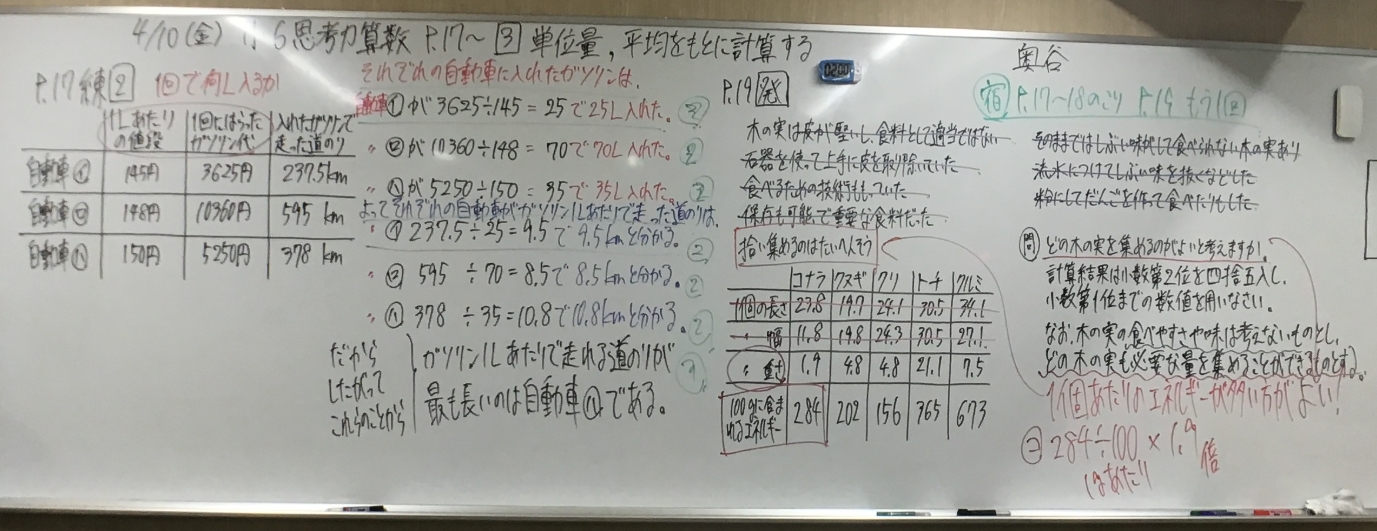 4/10(金) 小6思考力算数 P.17～ 3 単位量,平均をもとに計算する
奥谷
P.17 練2 1回で何L入るか
1Lあたりの値段 1回にはらったガソリン代 入れたガソリンで走った道のり
自動車㋑ 145円 3625円 237.5km
自動車㋺ 148円 10360円 595 km
自動車㋩ 150円 5250円 378 km
それぞれの自動車に入れたガソリンは、
自動車㋑が 3625÷145=25で25L入れた。②
〃 ㋺が 10360÷148=70で70L入れた。②
〃 ㋩が 5250÷150=35で35L入れた。②
よってそれぞれの自動車がガソリン1Lあたりで走った道のりは、
〃 ㋑ 237.5÷25=9.5で9.5kmと分かる。②
〃 ㋺ 595 ÷70=8.5で8.5kmと分かる。②
〃 ㋩ 378 ÷35=10.8で10.8kmと分かる。②
だから
したがって
これらのことから
ガソリン1Lあたりで走れる道のりが
最も長いのは自動車㋩である。
P.19 発
02:00
宿 P.17～18のこり P.19 もう1回
木の実は皮が堅いし、食料として適当ではない
石器を使って上手に皮を取り除いていた
食べるための技術をもっていた
保存も可能で重要な食料だった
拾い集めるのはたいへんそう
そのままではしぶい味がして食べられない木の実あり
流水につけてしぶい味を抜くなどした
粉にしてだんごを作って食べたりもした
コナラ クヌギ クリ トチ クルミ
1個の長さ 23.8 19.7 24.1 30.5 34.1
〃 幅 11.8 19.8 24.3 30.5 27.1
〃 重さ 1.9 4.8 4.8 21.1 7.5
100gに含まれるエネルギー 284 202 156 365 673
問 どの木の実を集めるのがよいと考えますか。
計算結果は小数第2位を四捨五入し、
小数第1位までの数値を用いなさい。
なお、木の実の食べやすさや味は考えないものとし、
どの木の実も必要な量を集めることができるものとする。
1個あたりのエネルギーが多い方がよい!
㋙ 284÷100×1.9倍
1gあたり